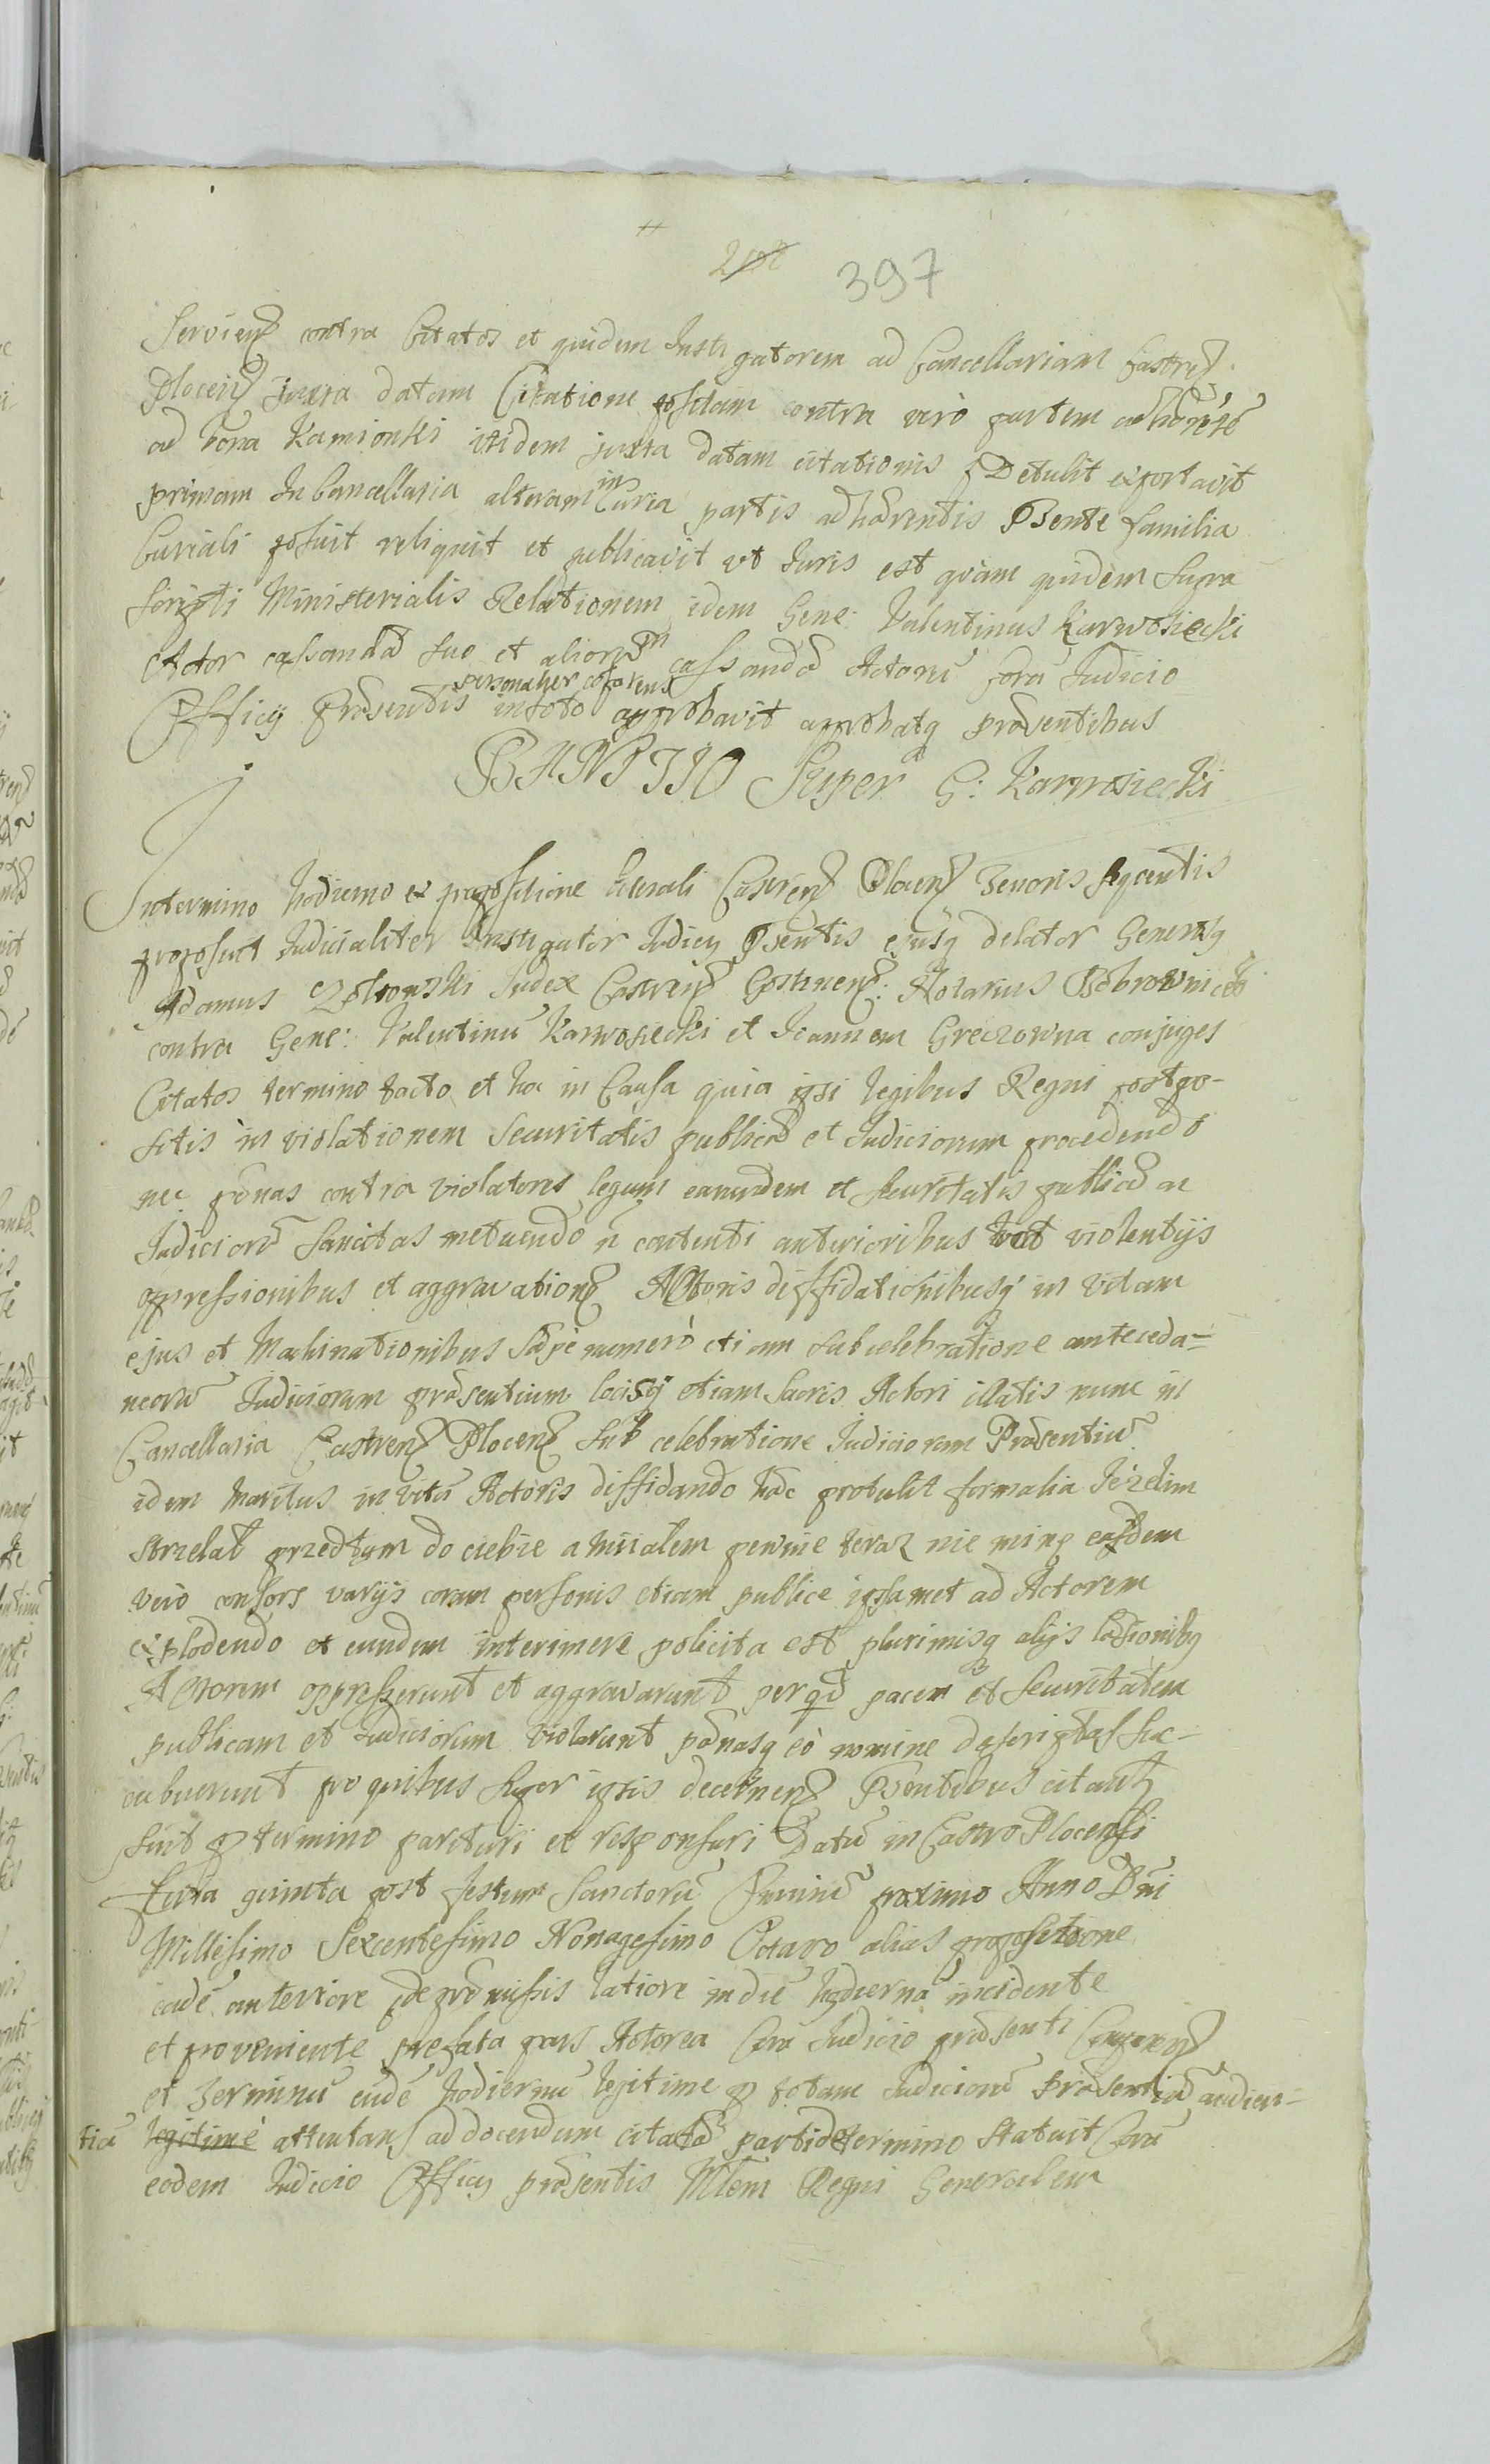 397
Serviens contra Citatos et quidem Instigatorem ad Cancellariam Castren
Plocen juxta datam Citatione positam contra vero partem adhærentē
ad bona Kamionki itidem juxta datam citationis Detulit exportavit
primam In Cancellaria alteram in Curia partis adhærentis Psente familia
Curiali posuit reliquit et publicavit ut Iuris est quam quidem supra
scripti Ministerialis Relationem idem Gene: Valentinus Karwosiecki
Actor cassandā suo et aliorum cassandā Actorū corā Iudicio
Officÿ præsentis personaliter coparens in toto approbavit approbatq præsentibus
BANITIO Super G: Karwosiecki
In termino hodierno ex propositione literali Castren Plocen Tenoris sequentis
proposuit Iudicialiter Instigator Iudicÿ Psentis ejusq delator Generosq
Adamus Zołtowski Iudex Castren Gostinen: Notarius Bobrownicen
contra Gene: Valentinū Karwosiecki et Ioannem Greczowna conjuges
Citatos termino tacto et hac in Causa quia ipsi legibus Regni postpo-
sitis in violationem securitatis publicæ et Iudiciorum procedendo
nec pænas contra violatores legum earundem et securitatis publicæ ac
Iudiciorū sancitas metuendo n contenti anterioribus tot violentijs
oppressionibus et aggravation Actoris diffidationibusq in vitam
ejus et Machinationibus sæpe numerò etiam sub celebratione anteceda-
neorū Iudiciorum præsentium locisq etiam sacris Actori illatis nunc in
Cancellaria Castren Plocen sub celebratione Iudiciorum Præsentiū
idem maritus in vitā Actoris diffidando hæc protulit formalia Iezelim
strzelał przedtym do ciebie a miiałem pewnie teraz nie minę ejusdem
verò consors varijs coram personis etiam publice ipsamet ad Actorem
explodendo et eundem interimere policita est plurimisq alijs læsionibq
Actorem oppresserunt et aggravarunt per qd pacem et securitatem
publicam et Iudiciorum violarunt pænasq eò nomine descriptas suc-
cubuerunt pro quibus super ipsis decernen Psentibus citant
sint p termino parituri et responsuri Datū in Castro Plocensi
Feria quinta post festum Sanctorū proximo Anno Dni
Millesimo Sexcentesimo Nonagesimo Octavo alias propositione
eadē anteriore de præmissis latiore in diē hodiernā incidente
et proveniente præfata pars Actorea Corā Iudicio præsenti Comparen
et Terminū eundē hodiernū legitime p totam Iudiciorū Præsentiū audien-
tiā legitimè attentans ad docendum citatæ parti de termino statuit Corā
eodem Iudicio Officÿ præsentis Mlem Regni Generalem